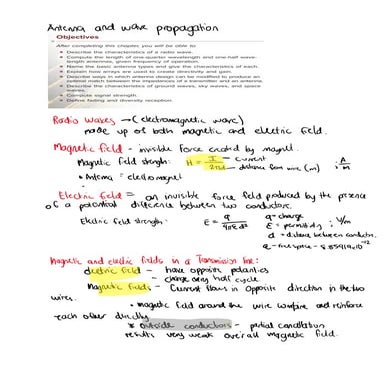 Antenna and wave propagation
Objectives
After completing this chapter, you will be able to:
• Describe the characteristics of a radio wave.
• Compute the length of one-quarter wavelength and one-half wave-
length antennas, given frequency of operation.
• Name the basic antenna types and give the characteristics of each.
• Explain how arrays are used to create directivity and gain.
• Describe ways in which antenna design can be modified to produce an
optimal match between the impedances of a transmitter and an antenna.
• Describe the characteristics of ground waves, sky waves, and space
waves.
• Compute signal strength.
• Define fading and diversity reception.
Radio Waves → (electromagnetic wave)
made up of both magnetic and electric field.
Magnetic field - invisible force created by magnet.
Magnetic field strength: H = I / 2πd - current - distance from wire (m) ; A/m
• Antenna = electromagnet
Electric field = an invisible force field produced by the presence
of a potential difference between two conductors.
Electric field strength: E = q / 4πεd² q - charge
ε = permittivity ; V/m
d = distance between conductors
space - 8.85
Magnetic and electric fields in a Transmission line:
electric field - have opposite polarities
- change every half cycle
Magnetic fields - Current flows in opposite direction in the two
wires.
• magnetic field around the wire combine and reinforce
each other directly
* outside conductors - partial cancellation
results very weak overall magnetic field.